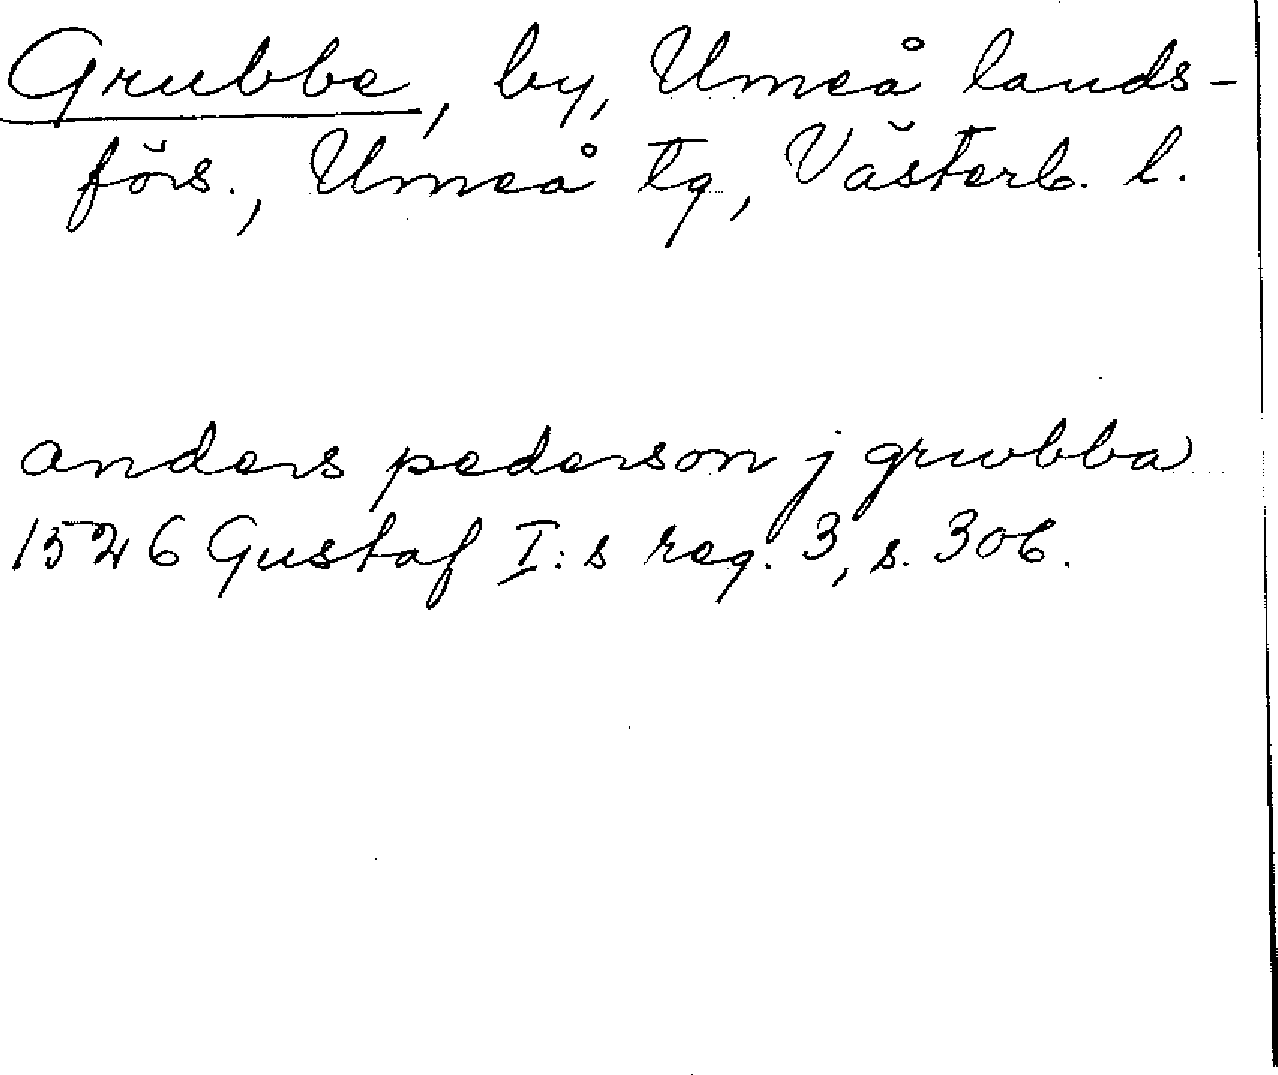 Grubbe, by, Umeå lands-
förs., Umeå tg, Västerb. l.
anders pederson j grwbba
1526 Gustaf I:s reg. 3, s. 306.